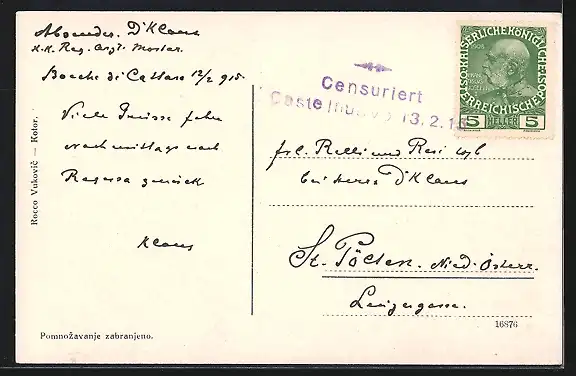 Absender. Dr Klaus
K.K. Reg. Arzt. Mostar.
Bocche di Cattaro 12/2 915
Viele Grüsse fahre
nachmittags nach
Ragusa zurück
Klaus
Rocco Vuković — Kotor.
Pomnožavanje zabranjeno.
Censuriert
Castelnuovo 13.2.15
KAISERLICHE KÖNIGLICHE ÖSTERREICHISCHE
1908
5 HELLER 5
frl. Relli und Resi
bei Herrn Dr Klaus
St. Pölten. Nied. Österr.
Linzergasse.
16876